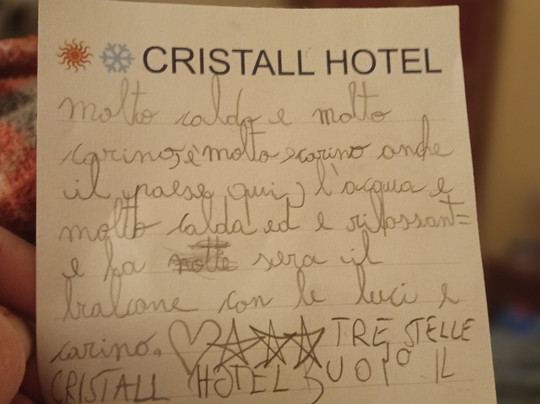 CRISTALL HOTEL
molto caldo e molto
carino, è molto carino anche
il paese qui, l'acqua e
molto calda ed e rilossant=
e la sera il
balcone con le luci e
carino. TRE STELLE
CRISTALL HOTEL IL